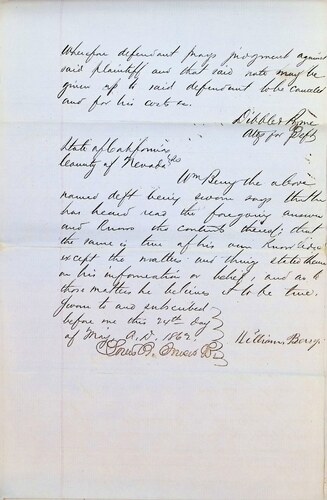 Wherefore defendant prays judgment against
said plaintiff and that said note may be
given up to said defendant to be canceled
and for his costs
Dibble &
Atty for Deft
State of California
County of Nevada
Wm the above
named deft being sworn says that he
has heard read the foregoing answer
and knows the contents thereof; that
the same is true of his own knowledge
except the matters and things stated therein
on his information or belief, and as to
those matters he believes it to be true.
Sworn to and subscribed
before me this 24th day
of May A.D. 1862.
William